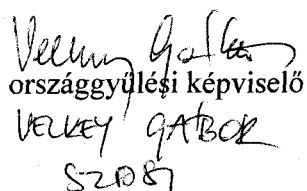 Velkey Gábor
országgyűlési képviselő
VELKEY GÁBOR
SZDSZ